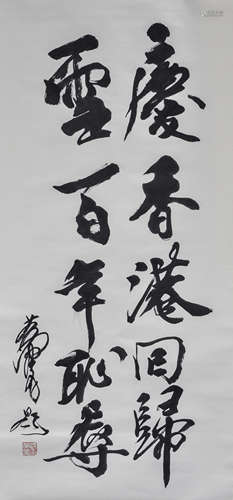 慶香港回歸
雪百年恥辱